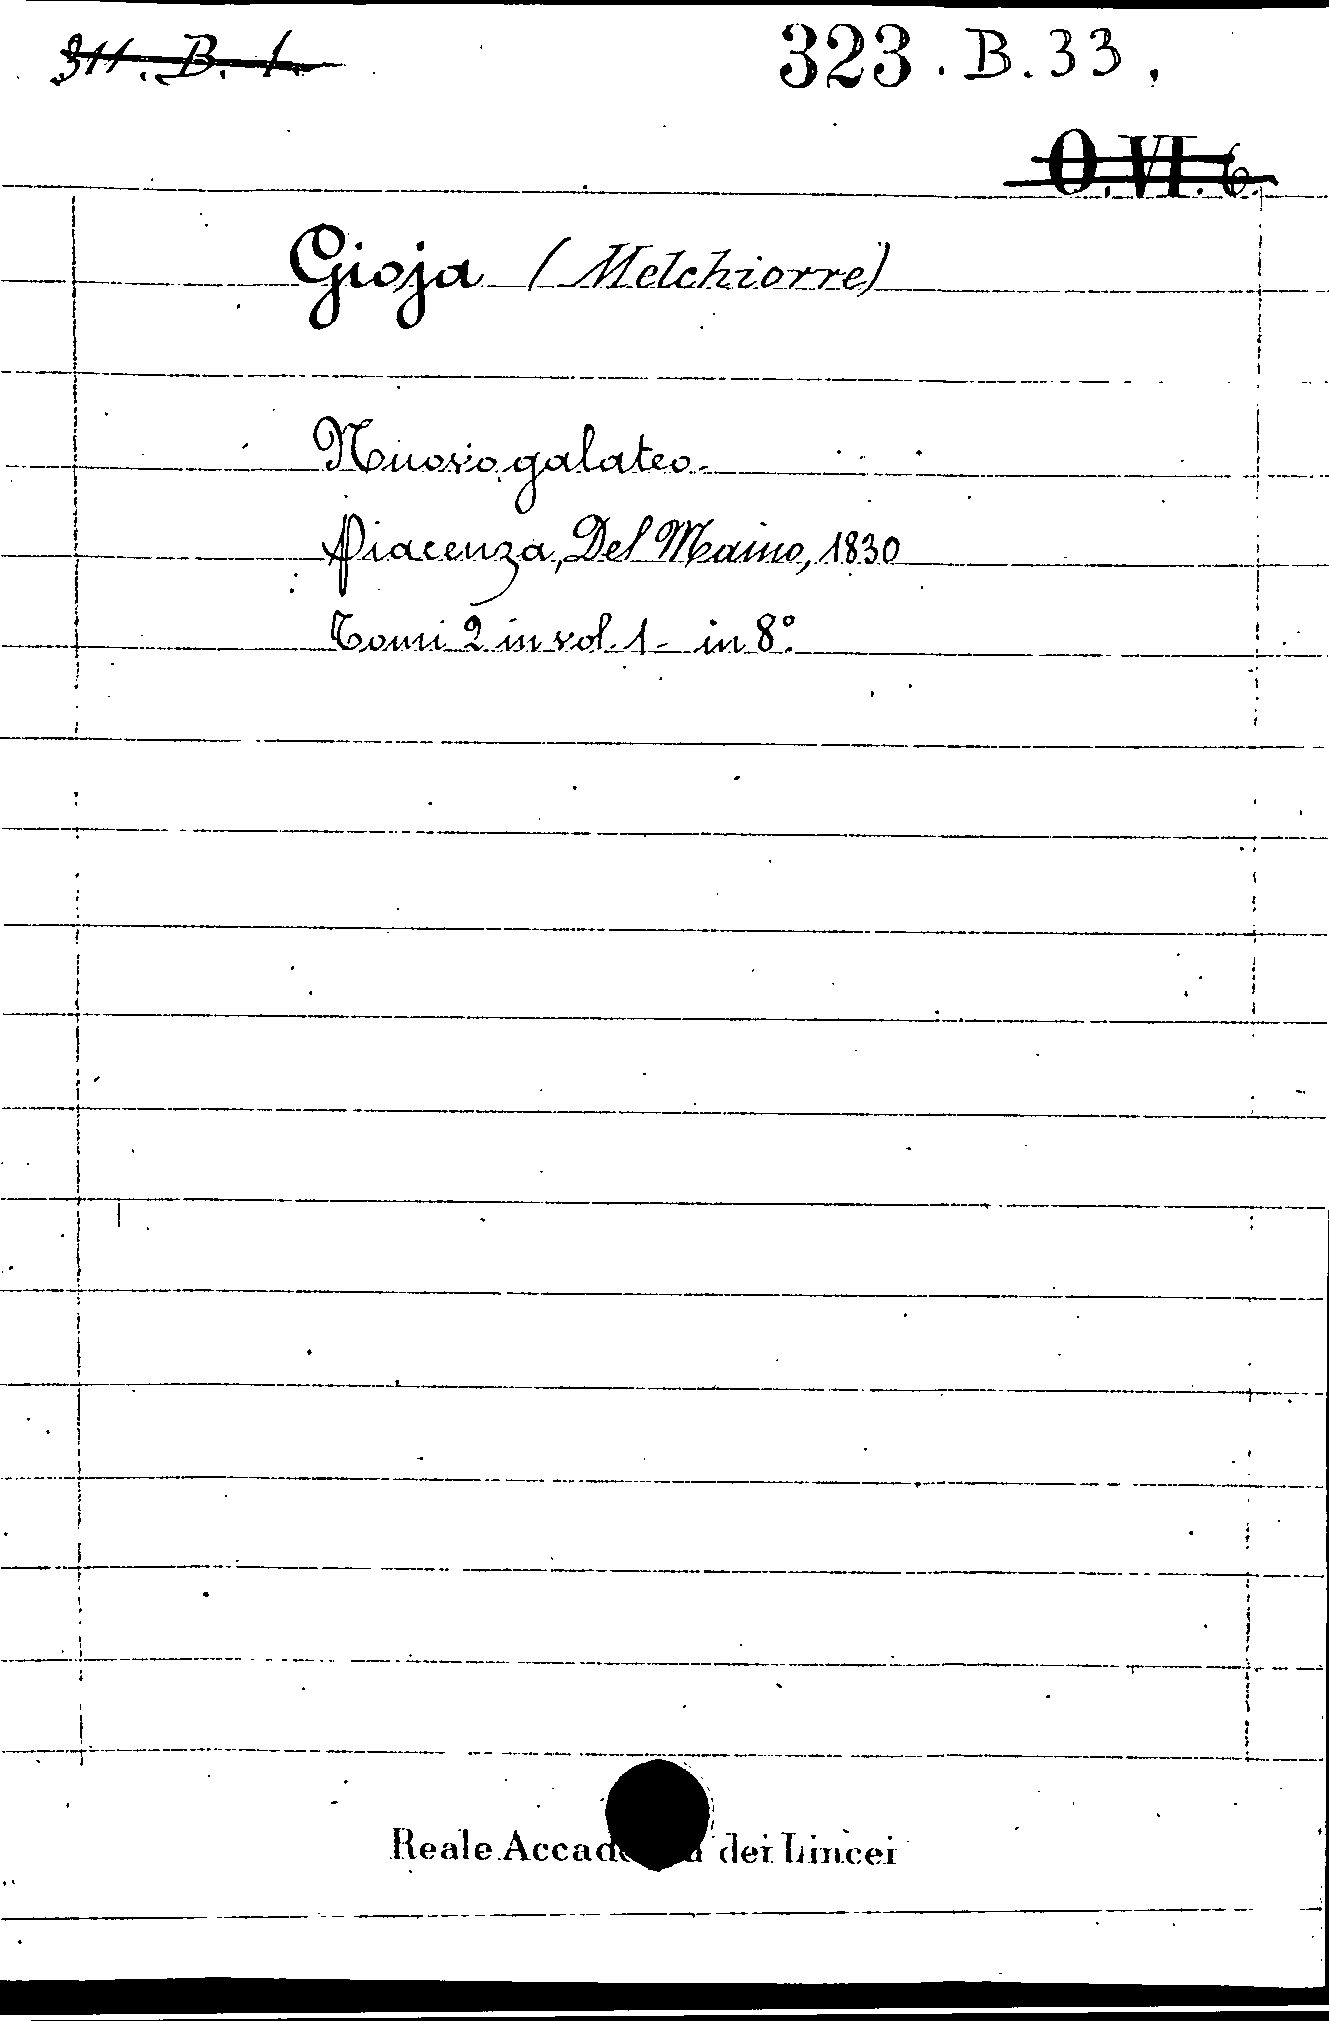 311. B. 1.
323. B. 33.
O. VI. 6.
Gioja (Melchiorre)
Nuovo galateo.
Piacenza, Del Maino, 1830
Tomi 2 in vol. 1 - in 8°.
Reale Accad dei Lincei